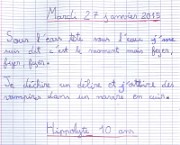 Mardi 27 janvier 2015
Sous l'eau tête sous l'eau j'me
suis dit c'est le moment mais foyer,
foyer foyer.
Je déchire un délire et j'attire des
vampires dans un navire en cuir.
Hippolyte 10 ans